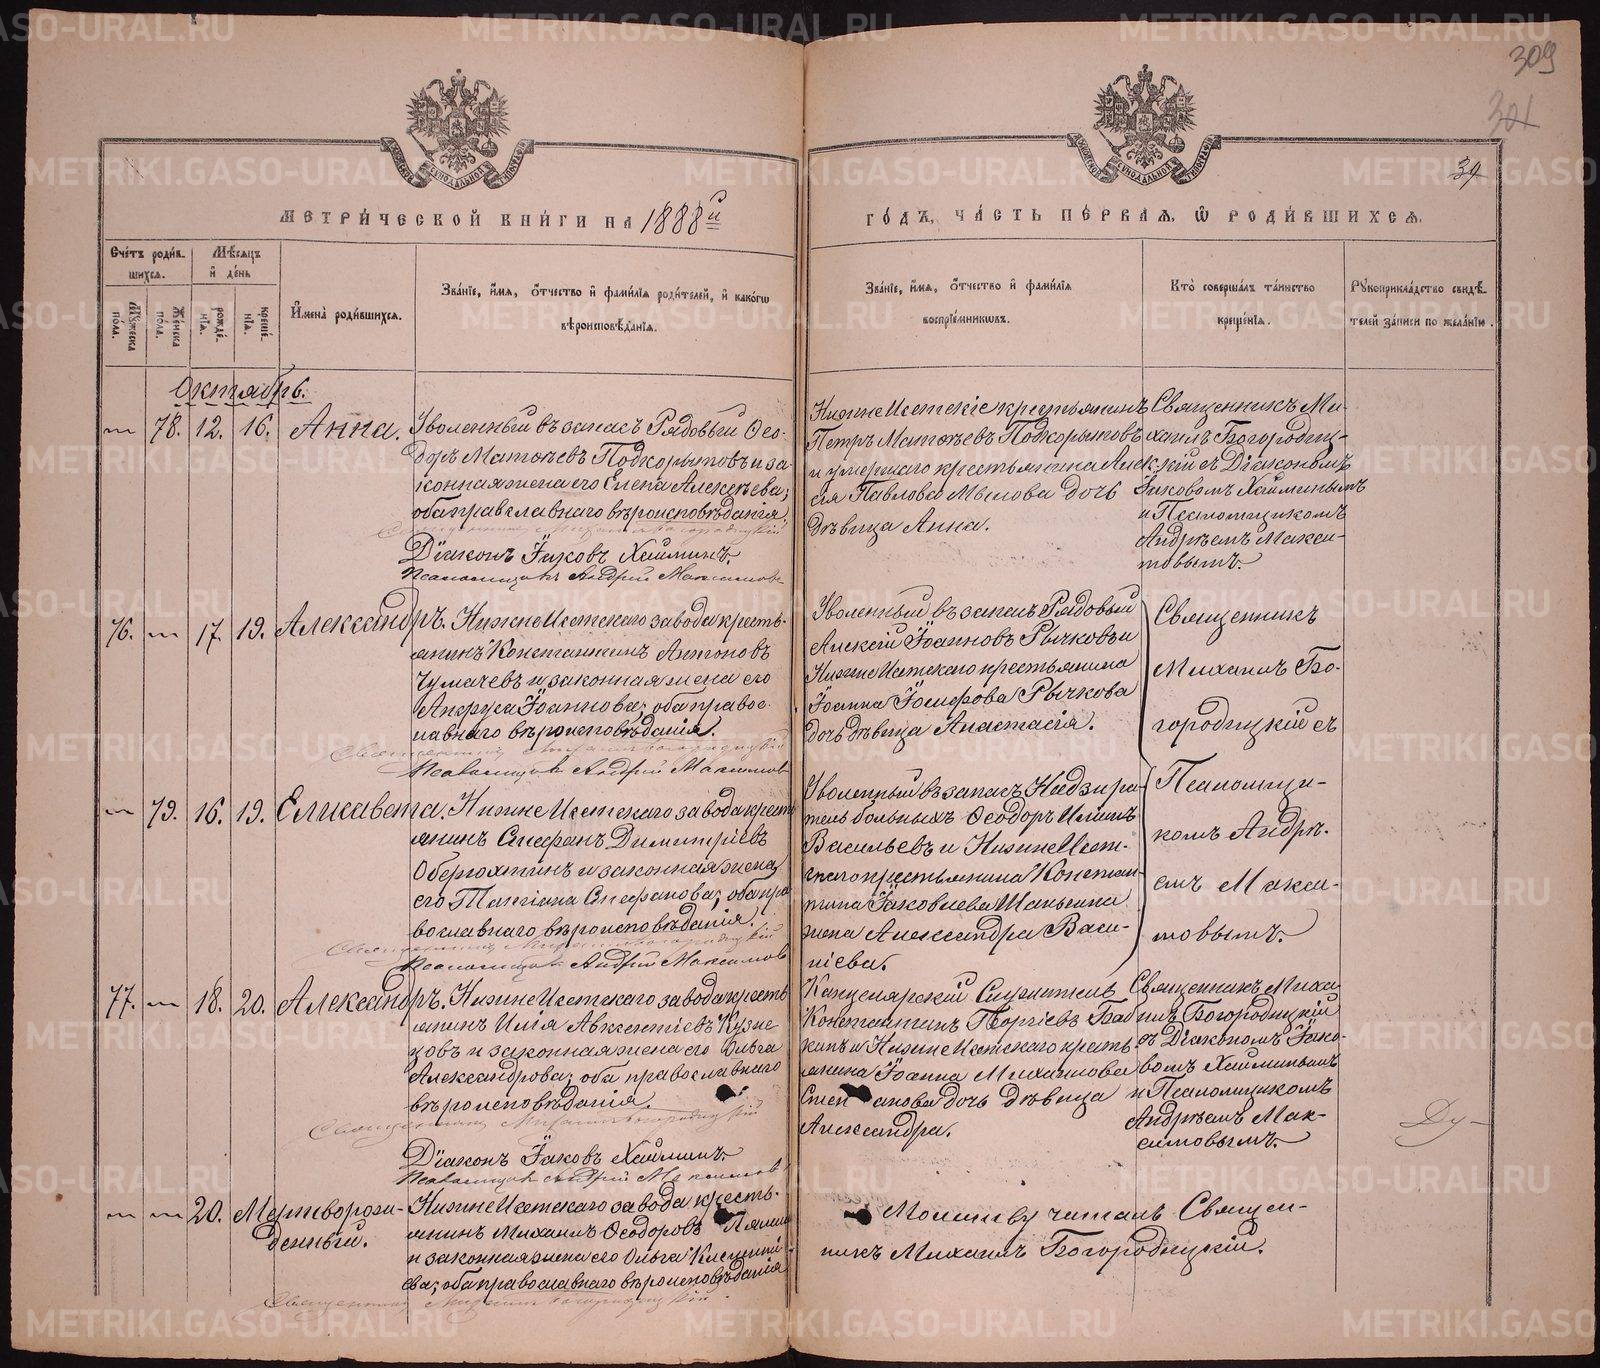 309
301
39
МЕТРИЧЕСКОЙ КНИГИ НА 1888й
ГОДЪ, ЧАСТЬ ПЕРВАЯ, Ѡ РОДИВШИХСЯ.
Счетъ родившихся.
Мужеска пола.
Женска пола.
Мѣсяцъ и день
рожденія.
крещенія.
Имена родившихся.
Званіе, имя, отчество и фамилія родителей, и какогѡ
вѣроисповѣданія.
Званіе, имя, отчество и фамилія
воспріемникѡвъ.
Кто совершалъ таинство
крещенія.
Рукоприкладство свидѣ-
телей записи по желанію.
Октябрь.
78. 12. 16. Анна.
Уволенный въ запасъ Рядовый Ѳео-
доръ Матѳѣевъ Подкорытовъ и за-
конная жена его Елена Алексѣева;
оба православнаго вѣроисповѣданія.
Священникъ Михаилъ Богородицкій
Діаконъ Іаковъ Хайминъ.
Псаломщикъ Андрей Максимовъ
Нижнеисетскіе крестьянинъ
Петръ Матѳѣевъ Подкорытовъ
и умершаго крестьянина Алек-
сія Павлова Мылова дочь
дѣвица Анна.
Священникъ Ми-
хаилъ Богородиц-
кій съ Діакономъ
Іаковомъ Хайминымъ
и Псаломщикомъ
Андреемъ Макси-
мовымъ.
76. 17. 19. Александръ.
Нижнеисетскаго завода кресть-
янинъ Константинъ Антоновъ
Чумачевъ и законная жена его
Іоаннова; оба правос-
лавнаго вѣроисповѣданія.
Священникъ Михаилъ Богородицкій
Псаломщикъ Андрей Максимовъ
Уволенный въ запасъ Рядовый
Алексій Іоанновъ Рычковъ и
Нижнеисетскаго крестьянина
Іоанна Іосифова Рычкова
дочь дѣвица Анастасія.
Священникъ
Михаилъ Бо-
городицкій съ
Псаломщи-
комъ Андре-
емъ Макси-
мовымъ.
79. 16. 19. Елисавета.
Нижнеисетскаго завода крест-
янинъ Стефанъ Димитріевъ
Оберюхтинъ и законная жена
его Татіана Стефанова; оба пра-
вославнаго вѣроисповѣданія.
Священникъ Михаилъ Богородицкій
Псаломщикъ Андрей Максимовъ
Уволенный въ запасъ Надзира-
тель больныхъ Ѳеодоръ Илiинъ
Васильевъ и Нижнеисет-
скаго крестьянина Констан-
тина Іаковлева Шаньгина
жена Александра Васи-
ліева.
77. 18. 20. Александръ.
Нижнеисетскаго завода кресть-
янинъ Илія Авксентіевъ Кузне-
цовъ и законная жена его Ольга
Александрова; оба православнаго
вѣроисповѣданія.
Священникъ Михаилъ Богородицкій
Діаконъ Іаковъ Хайминъ.
Псаломщикъ Андрей Максимовъ
Канцелярскій Служитель
Константинъ Георгіевъ Баб-
кинъ и Нижнеисетскаго кресть-
янина Іоанна Михаилова
Степанова дочь дѣвица
Александра.
Священникъ Миха-
илъ Богородицкій
съ Діакономъ Іако-
вомъ Хайминымъ
и Псаломщикомъ
Андреемъ Мак-
симовымъ.
20. Мертворож-
денный.
Нижнеисетскаго завода кресть-
янинъ Михаилъ Ѳеодоровъ
и законная жена его Ольга Клемент-
ева; оба православнаго вѣроисповѣданія
Священникъ Михаилъ Богородицкій.
Молитву читалъ Священ-
никъ Михаилъ Богородицкій.
METRIKI.GASO-URAL.RU